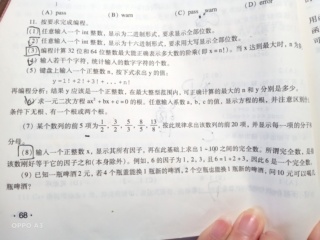 (A) pass (B) warn (C) pass, warn (D) error
11. 按要求完成编程。
(1) 任意输入一个 int 整数,显示为二进制形式,要求显示全部位数。
(2) 任意输入一个 int 整数,显示为十六进制形式,要求用大写显示全部位数。
(3) 编程计算 32 位和 64 位整数最大能正确表示多大的阶乘(即 x=n!)。当 x 达到最大时,n 为
(4) 输入若干个字符,统计输入的数字字符的个数。
(5) 键盘上输入一个正整数 n,按下式求出 y 的值:
y=1!+2!+3!+...+n!
再编程分析:结果 y 仍然是一个正整数,在最大整型范围内,可正确计算的最大的 n 和 y 分别是多少。
求一元二次方程 ax²+bx+c=0 的根。任意输入系数 a、b、c 的值,显示方程的根。并注意区别
条件下无根、有一个根或两个根。
(7) 某个数列的前 5 项为 1/2, 2/3, 3/5, 5/8, 8/13,按此规律求出该数列的前 20 项,并显示每一项的分子
分母。
(8) 输入一个正整数 x,显示其所有因子,再在此基础上求出 1~100 之间的完全数,所谓完全数,
该数刚好等于它的因子之和(本身除外)。例如,6 的因子为 1,2,3,且 6=1+2+3,因此 6 是一个完全数。
(9) 已知一瓶啤酒 2 元,若 4 个瓶盖能换 1 瓶新的啤酒,2 个空瓶也能换 1 瓶新的啤酒,问 10 元可以喝
瓶啤酒?
· 68 ·
OPPO A72